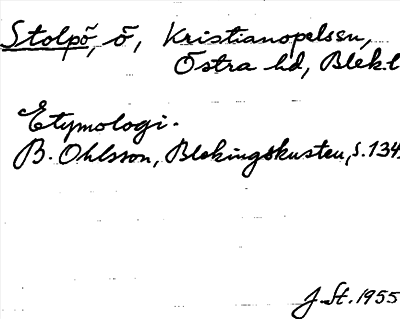 Stolpö, ö, Kristianopelssn,
Östra hd, Blek.l
Etymologi.
B. Ohlsson, Blekingskusten, s. 134.
J. St. 1955